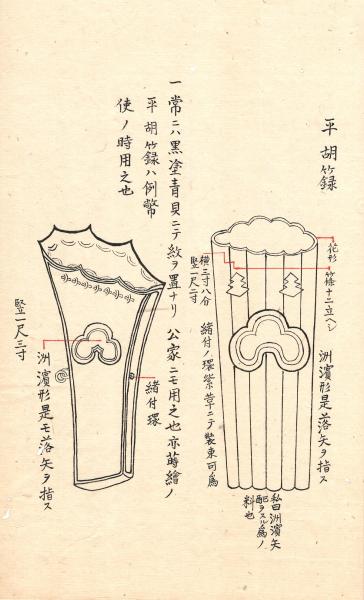 平胡竹録
花形
竹條十二立ヘシ
洲濱形是ハ落矢ヲ指ス
横三寸八分
竪一尺二寸
緒付ノ環紫草ニテ裝束可爲
私曰洲濱矢
配ヲスル爲ノ
料也
一常ニハ黒塗青貝ニテ紋ヲ置ナリ公家ニモ用之也亦蒔繪ノ
平胡竹録ハ例幣
使ノ時用之也
緒付環
洲濱形是モ落矢ヲ指ス
竪一尺三寸